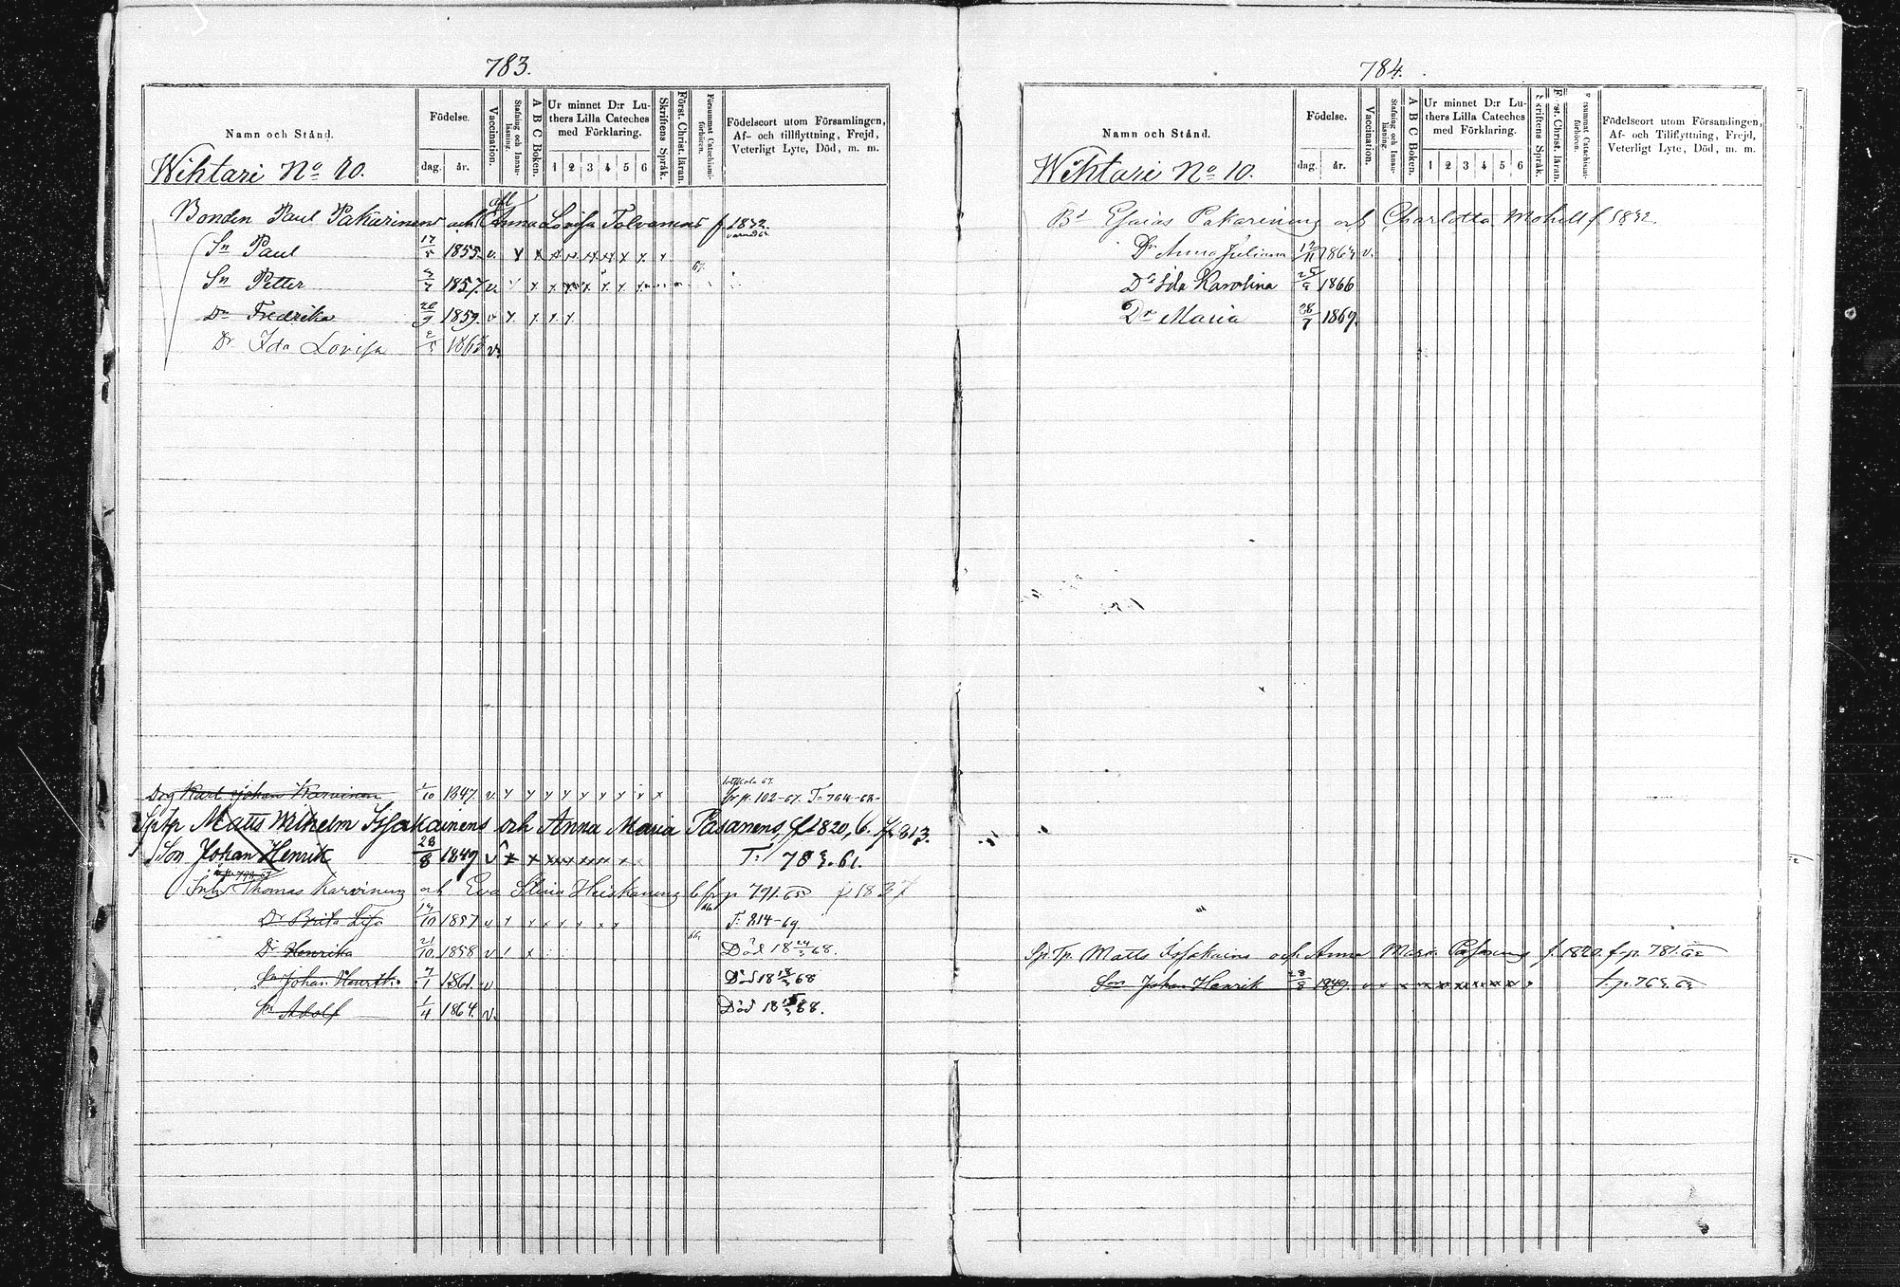 783.
Namn och Stånd.
Födelse.
dag. år.
Vaccination.
Stafning och Innan-läsning.
A B C Boken.
Ur minnet D:r Lu-
thers Lilla Cateches
med Förklaring.
1 2 3 4 5 6
Skriftens Språk.
Först. Christ. läran.
Försummat Catechismi-förhören.
Födelseort utom Församlingen,
Af- och tillflyttning, Frejd,
Veterligt Lyte, Död, m. m.
Wihtari No 10.
Bonden Paul Pakarinens och Anna Lovisa Tolvanens f 1832.
Sn Paul 17/5 1855. v. x x x x x x x x x
Sn Petter 1857. v
Dr Fredrika 20/9 1859. v x x x x
Dr Ida Lovisa 2/5 1863 v.
Drg Karl Johan Karvinen 1/10 1847. v x x x x x x x x x fr p. 102-67. T. 764-68.
Sptp Matts Wilhelm Issakainens och Anna Maria Pasanens, f 1820, 6. fp 813.
Son Johan Henrik 28/8 1849 v x x T. 783. 61.
Inh Thomas Karvinens och Eva Stina Heiskanens f. 1837
Dr Brita Lisa 1857 v x x x x x x x T. 814-69.
Dr Henrika 21/10 1858 v Död 18 68.
Sn Johan Henrik 7/1 1861. v Död 18 68
Sn Adolf 1/4 1864. v. Död 18 68.
784.
Namn och Stånd.
Födelse.
dag. år.
Vaccination.
Stafning och Innan-läsning.
A B C Boken.
Ur minnet D:r Lu-
thers Lilla Cateches
med Förklaring.
1 2 3 4 5 6
Skriftens Språk.
Först. Christ. läran.
Försummat Catechismi-förhören.
Födelseort utom Församlingen,
Af- och Tillflyttning, Frejd,
Veterligt Lyte, Död, m. m.
Wihtari No 10.
Bd Esaias Pakarinens och Charlotta f 1832
Dr Anna Juliana 1864 v.
Dr Ida Karolina 1866
Dr Maria 28/7 1869.
Sp. Tp. Matts Issakains och Anna Maria Pasanens f. 1820. f. p. 781. 62
Son Johan Henrik 28/8 1849. v x x x x x x x x f. p. 763. 62